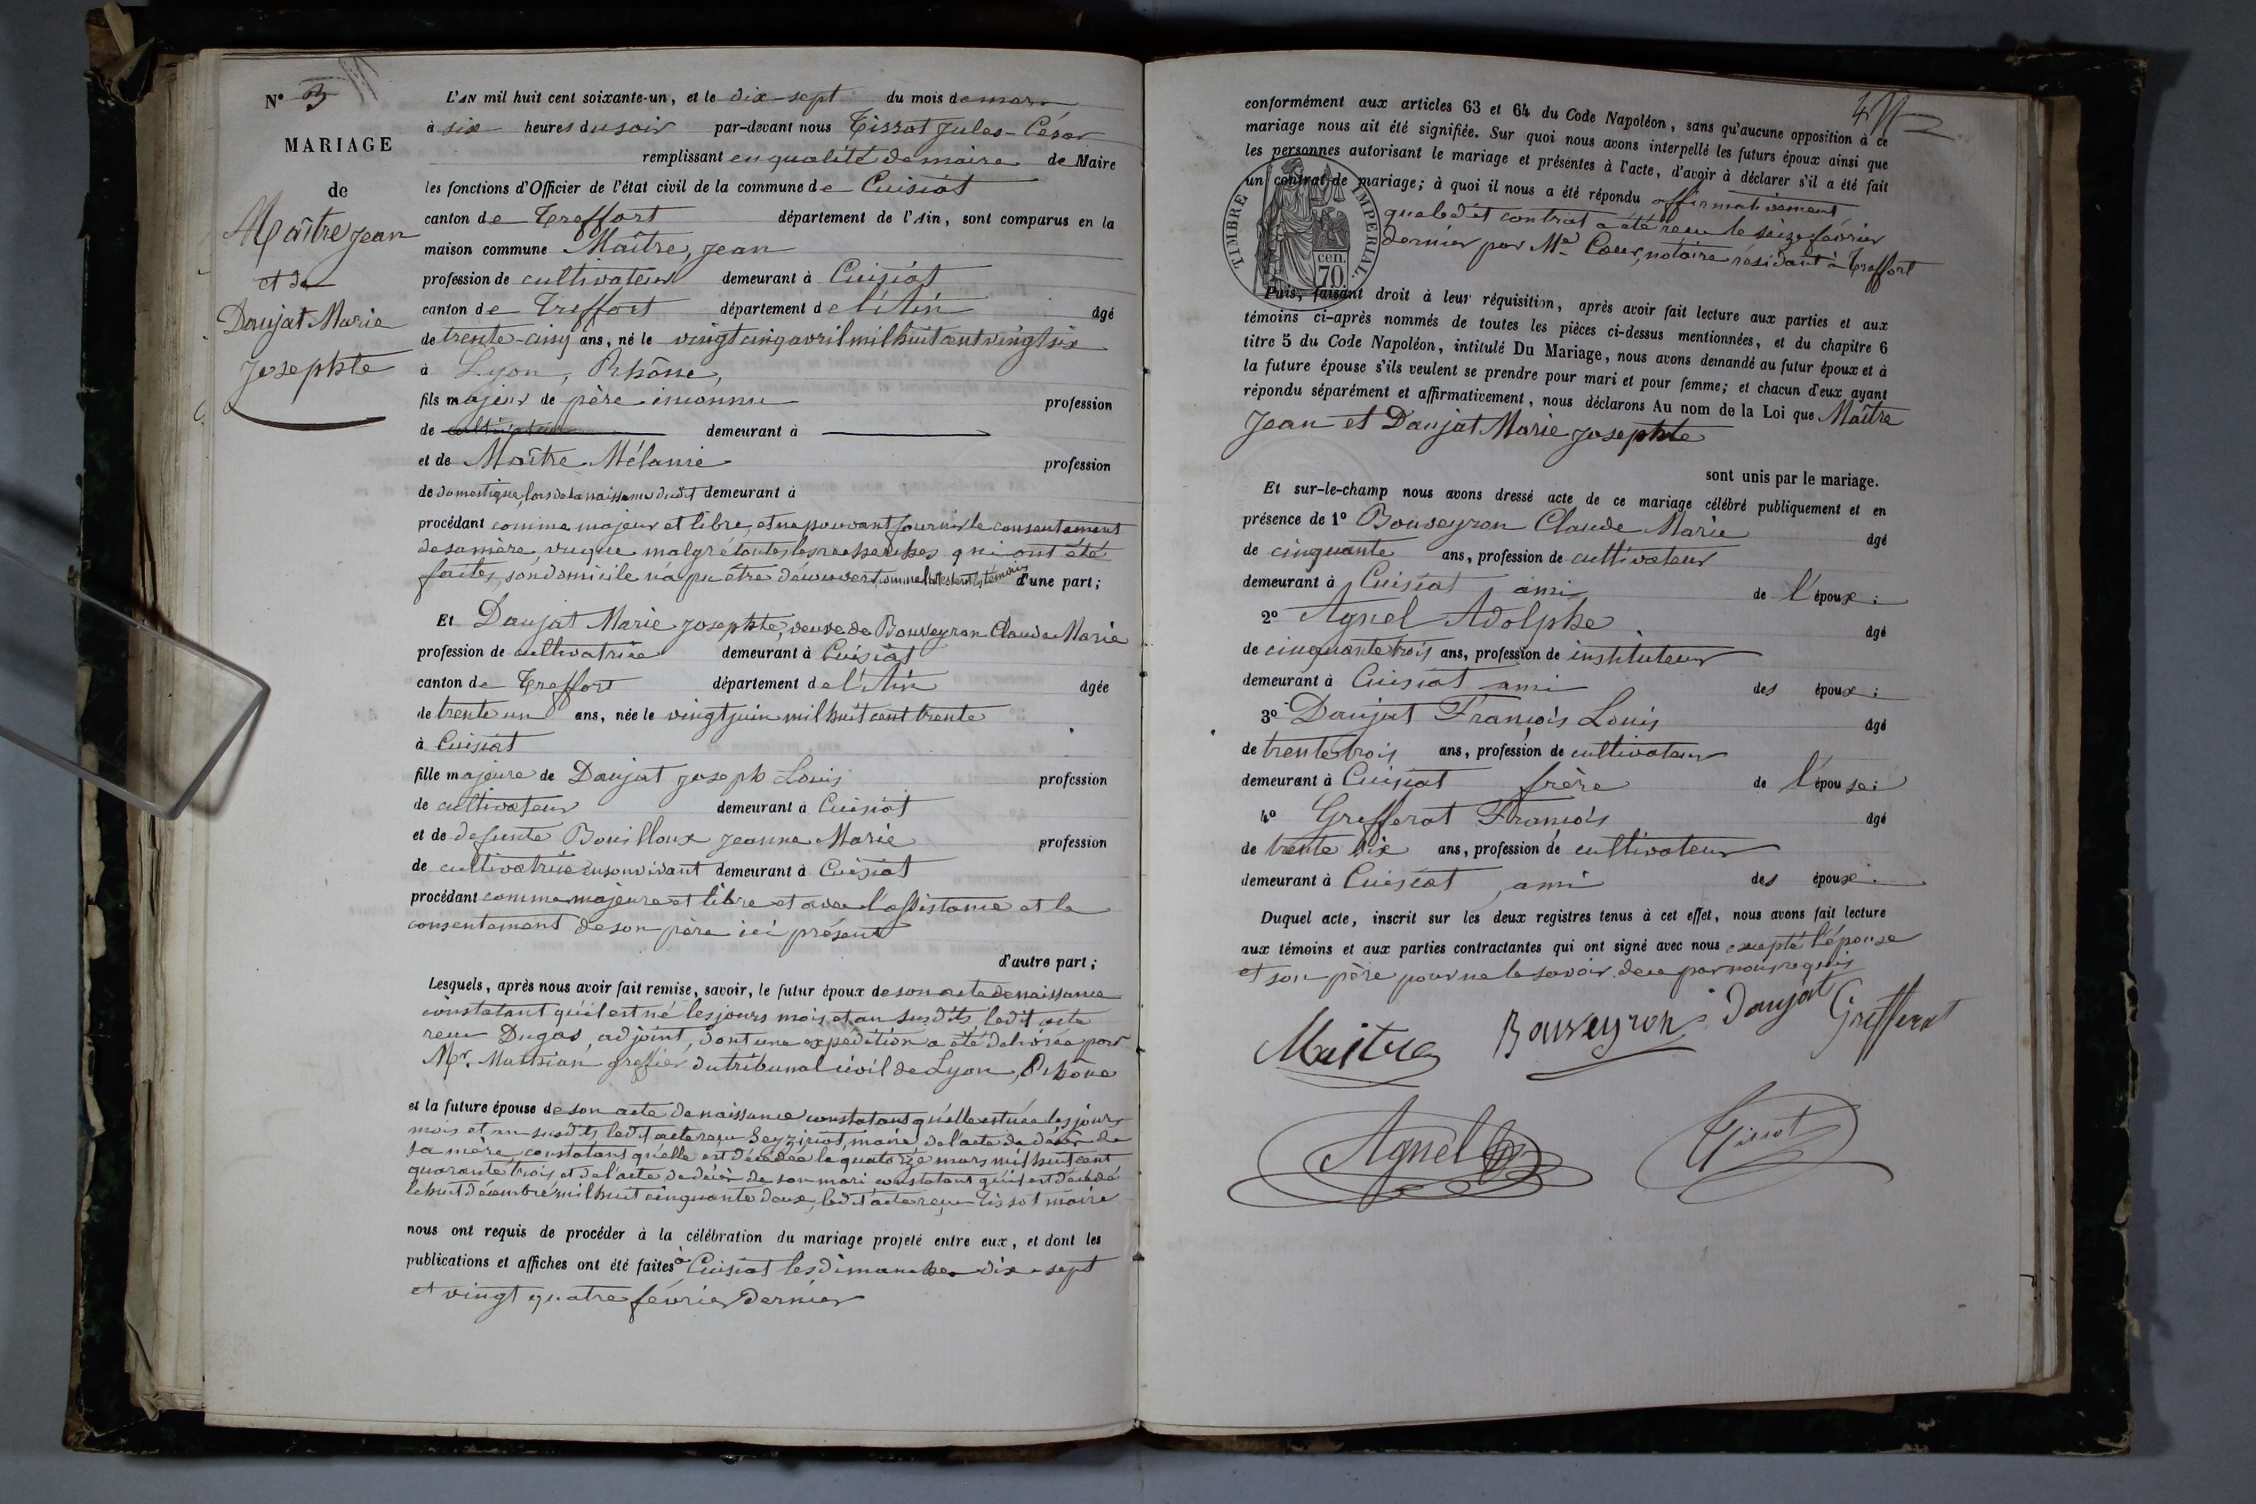 N° 3
MARIAGE
de
Maître Jean
et de
Daujat Marie
Josephte
L'AN mil huit cent soixante-un, et le dix-sept du mois de mars
à six heures du soir par-devant nous Tissot Jules-César
remplissant en qualité de maire de Maire
les fonctions d'Officier de l'état civil de la commune de Cuisiat
canton de Treffort département de l'Ain, sont comparus en la
maison commune Maître, Jean
profession de cultivateur demeurant à Cuisiat
canton de Treffort département de l'Ain âgé
de trente-cinq ans, né le vingt cinq avril mil huit cent vingt six
à Lyon, Rhône,
fils majeur de père inconnu profession
de cultivateur demeurant à
et de Maître Mélanie profession
de domestique, lors de la naissance dudit demeurant à
procédant comme majeur et libre, et ne pouvant fournir le consentement
de sa mère, vu que malgré toutes les recherches qui ont été
faites, son domicile n'a pu être découvert, comme l'attestent les témoins d'une part;
Et Daujat Marie Josephte, veuve de Bouveyron Claude Marie
profession de cultivatrice demeurant à Cuisiat
canton de Treffort département de l'Ain âgée
de trente un ans, née le vingt juin mil huit cent trente
à Cuisiat
fille majeure de Daujat Joseph Louis profession
de cultivateur demeurant à Cuisiat
et de defunte Bouilloux Jeanne Marie profession
de cultivatrice en son vivant demeurant à Cuisiat
procédant comme majeure et libre et avec l'assistance et le
consentement de son père ici présent
d'autre part;
Lesquels, après nous avoir fait remise, savoir, le futur époux de son acte de naissance
constatant qu'il est né les jours mois et an susdits ledit acte
reçu Dugas, adjoint, dont une expédition a été délivrée par
Mr. greffier du tribunal civil de Lyon, Rhône
et la future épouse de son acte de naissance constatant qu'elle est née les jours
mois et an susdits ledit acte reçu maire de l'acte de décès de
sa mère constatant qu'elle est décédée le quatorze mars mil huit cent
quarante trois et de l'acte de décès de son mari constatant qu'il est décédé
le huit décembre mil huit cinquante deux, ledit acte reçu Tissot maire
nous ont requis de procéder à la célébration du mariage projeté entre eux, et dont les
publications et affiches ont été faites à Cuisiat les dimanches dix-sept
et vingt quatre février dernier
conformément aux articles 63 et 64 du Code Napoléon, sans qu'aucune opposition à ce
mariage nous ait été signifiée. Sur quoi nous avons interpellé les futurs époux ainsi que
les personnes autorisant le mariage et présentes à l'acte, d'avoir à déclarer s'il a été fait
un contrat de mariage; à quoi il nous a été répondu affirmativement
que ledit contrat a été reçu le seize février
dernier par Me Cœur, notaire résidant à Treffort
TIMBRE IMPERIAL.
cen.
70.
Puis, faisant droit à leur réquisition, après avoir fait lecture aux parties et aux
témoins ci-après nommés de toutes les pièces ci-dessus mentionnées, et du chapitre 6
titre 5 du Code Napoléon, intitulé Du Mariage, nous avons demandé au futur époux et à
la future épouse s'ils veulent se prendre pour mari et pour femme; et chacun d'eux ayant
répondu séparément et affirmativement, nous déclarons Au nom de la Loi que Maître
Jean et Daujat Marie Josephte
sont unis par le mariage.
Et sur-le-champ nous avons dressé acte de ce mariage célébré publiquement et en
présence de 1° Bouveyron Claude Marie âgé
de cinquante ans, profession de cultivateur
demeurant à Cuisiat ami de l'époux;
2° Agnel Adolphe âgé
de cinquante trois ans, profession de instituteur
demeurant à Cuisiat ami des époux;
3° Daujat François Louis âgé
de trente trois ans, profession de cultivateur
demeurant à Cuisiat frère de l'épouse;
4° Grefferat François âgé
de trente six ans, profession de cultivateur
demeurant à Cuisiat ami des époux.
Duquel acte, inscrit sur les deux registres tenus à cet effet, nous avons fait lecture
aux témoins et aux parties contractantes qui ont signé avec nous excepté l'épouse
et son père pour ne le savoir de ce par nous requis
Maitre Bouveyron Daujat Grefferat
Agnel Tissot